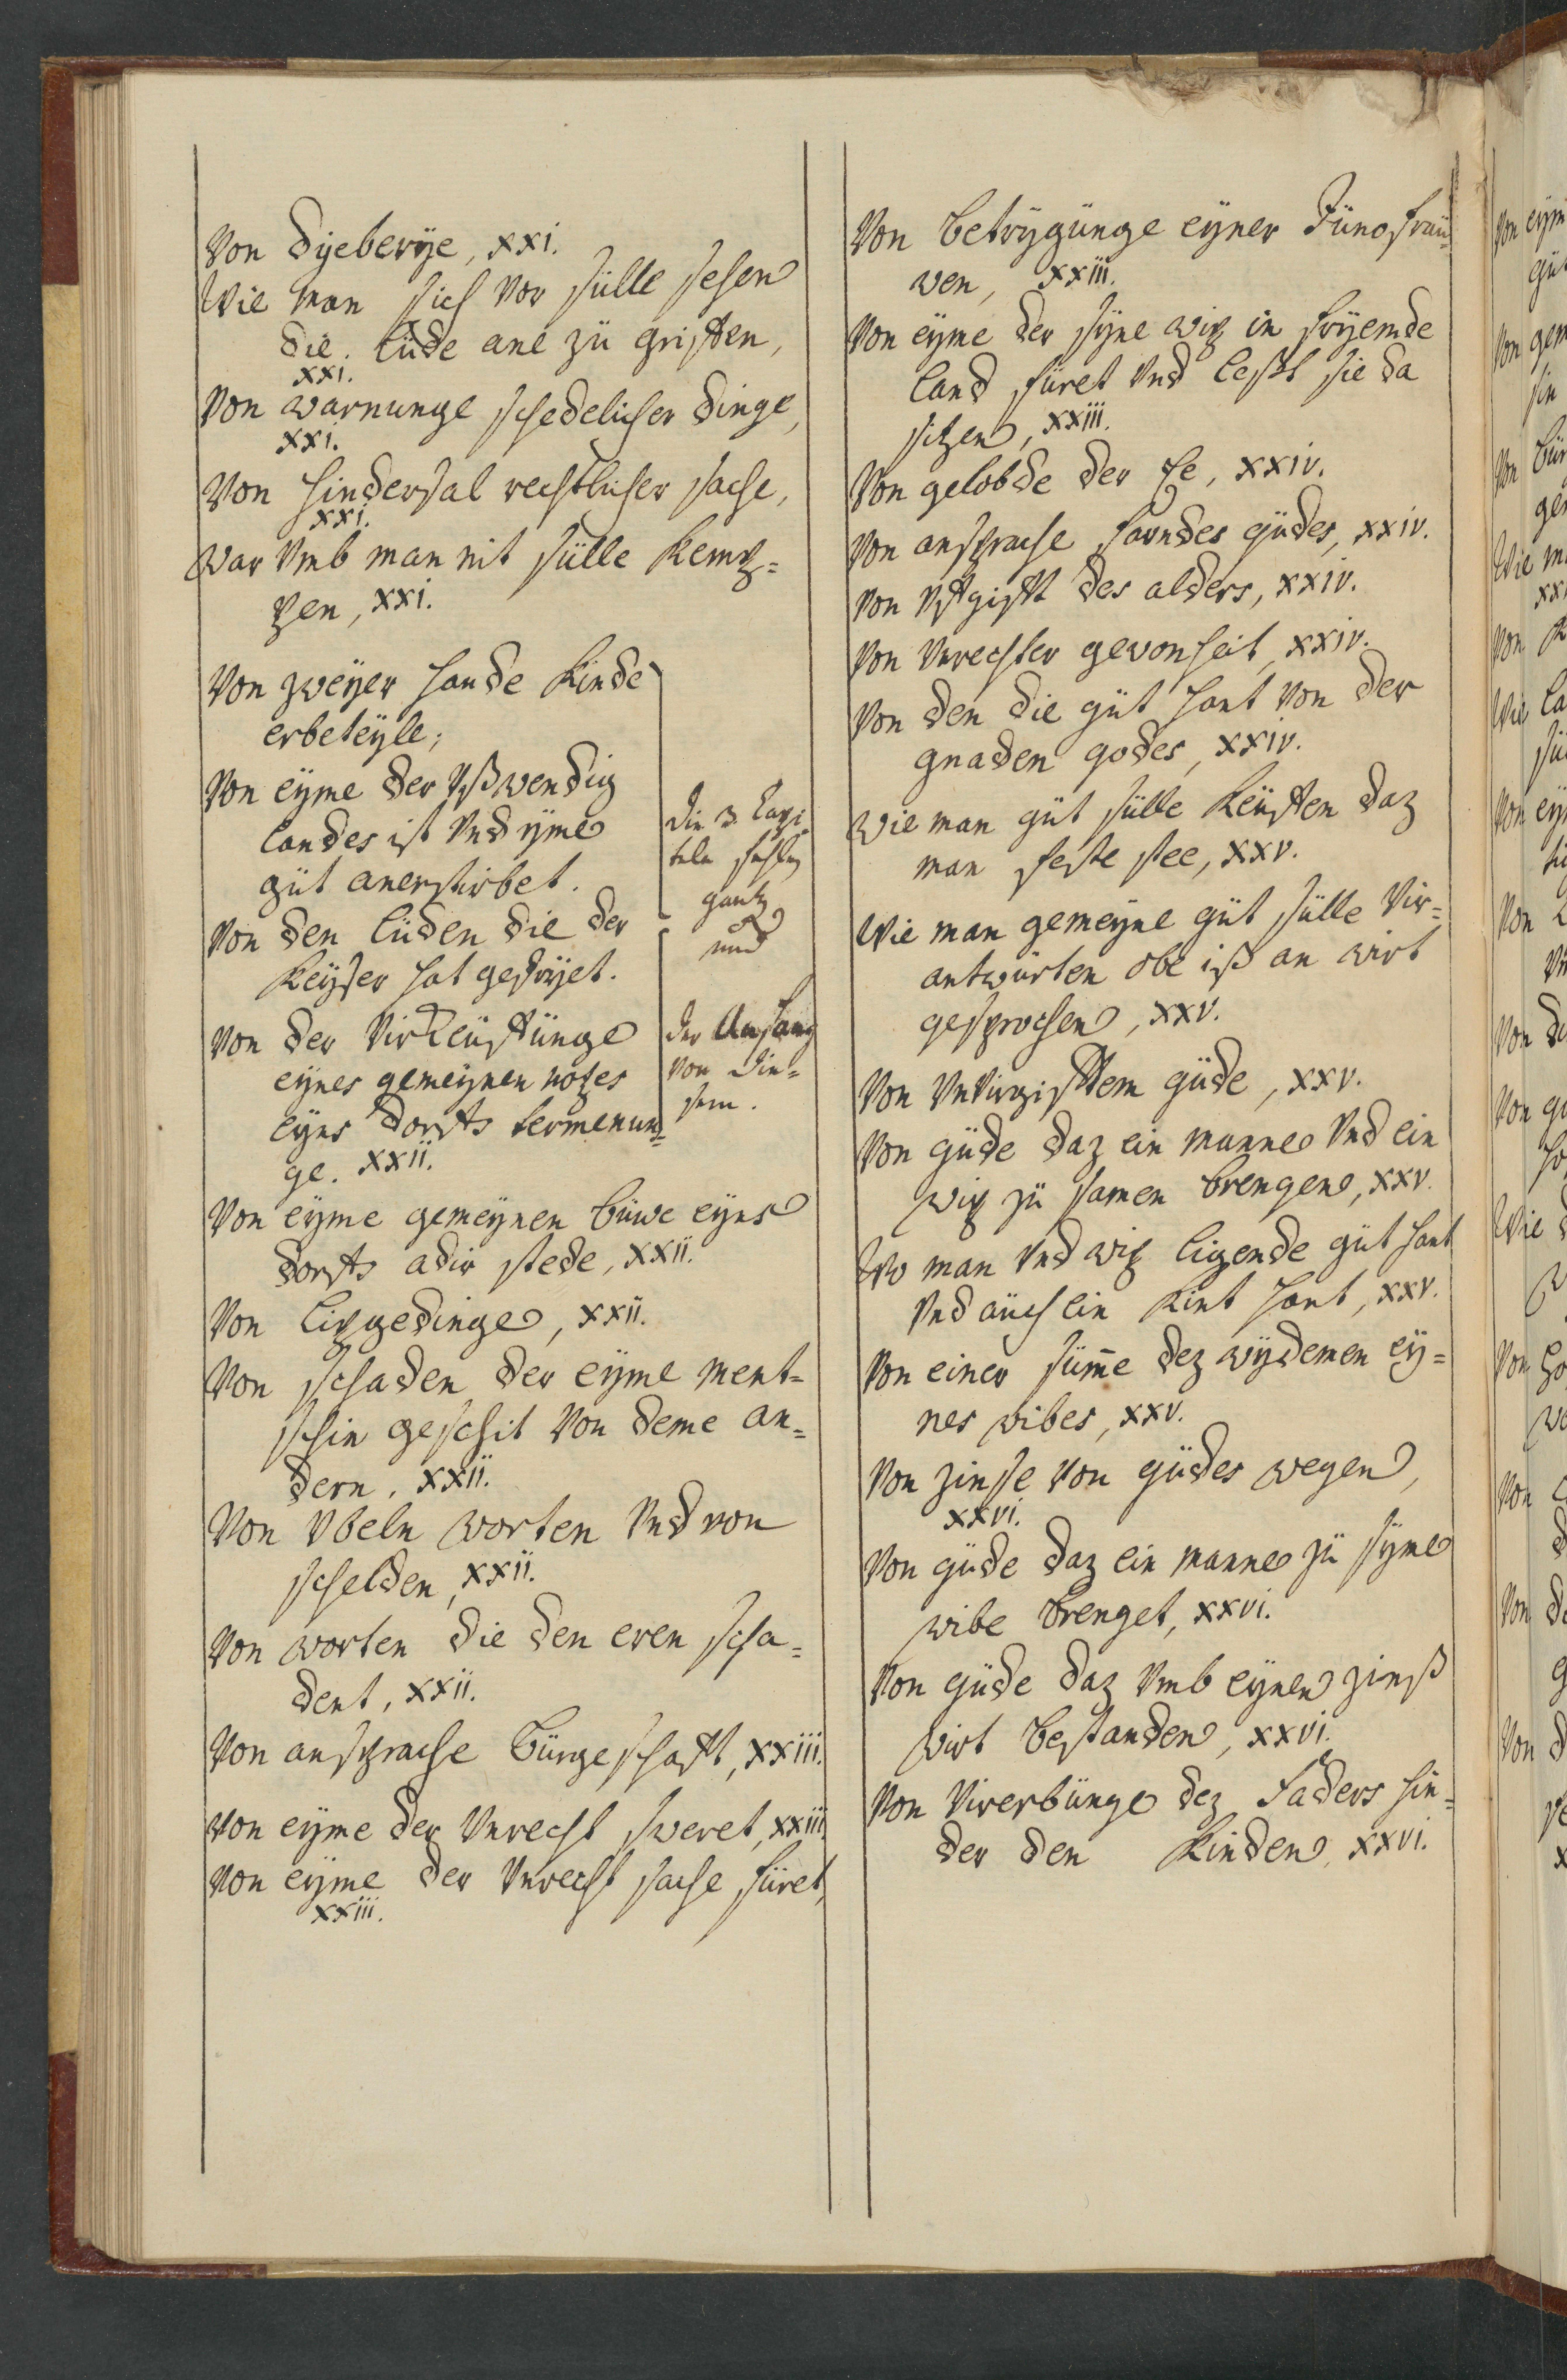 Von dyeberÿe, XXI.
Wie man sich vor sülle sehen
die lüde ane zü griffen,
XXI.
Von warnunge schedelicher dinge,
XXI.
Von hindersal rechtlicher sache,
XXI.
War vmb man nit sülle kemp=
pen, XXI.
Von zweÿer hande kinde
erbeteÿle;
Von eÿme der vßwendig
landes ist vnd yme
güt anerstirbet.
Von den lüden die der
keÿser hat gefrÿet.
Von der virkeüffünge
eÿnes gemeÿnen notzes
eÿns dorffs termenun=
ge. XXII.
die 3 Capi
teln fehlen
gantz
und
der Anfang
von die=
sem.
Von eÿme gemeÿnen büwe eÿns
dorffs adir stede, XXII.
Von lipgedinge, XXII.
Von schaden der eÿme ment=
schin geschit von deme an=
dern, XXII.
Von vbeln worten vnd von
schelden, XXII.
Von worten die den eren scha=
dent, XXII.
Von ansprache bürgeschafft, XXIII.
Von eÿme der vnrecht sweret, XXIII.
Von eÿme der vnrecht sache füret,
XXIII.
Von betrÿgünge eÿner Jüngfraü=
wen, XXIII.
Von eÿme der sÿne wip in frÿemde
land füret vnd leßt sie da
sitzen, XXIII.
Von gelobde der Ee, XXIV.
Von ansprache farndes güdes, XXIV.
Von vffgifft des alders, XXIV.
Von vnrechter gewonheit, XXIV.
Von den die güt hant von der
gnaden godes, XXIV.
Wie man güt sülle keüffen daz
man feste stee, XXV.
Wie man gemeÿne güt sülle vir=
antwürten obe iß an wirt
gesprochen, XXV.
Von vnvirgifftem güde, XXV.
Von güde daz ein manne vnd ein
wip zü samen brengen, XXV.
Wo man vnd wip ligende güt hant
vnd aüch ein kint hant, XXV.
Von einer süm̄e dez wÿdemen eÿ=
nes wibes, XXV.
Von zinse von güdes wegen,
XXVI.
Von güde daz ein manne zü sÿme
wibe brenget, XXVI.
Von güde daz vmb eÿnen zinß
wirt bestanden, XXVI.
Von virerbünge dez Faders hin=
der den kinden, XXVI.